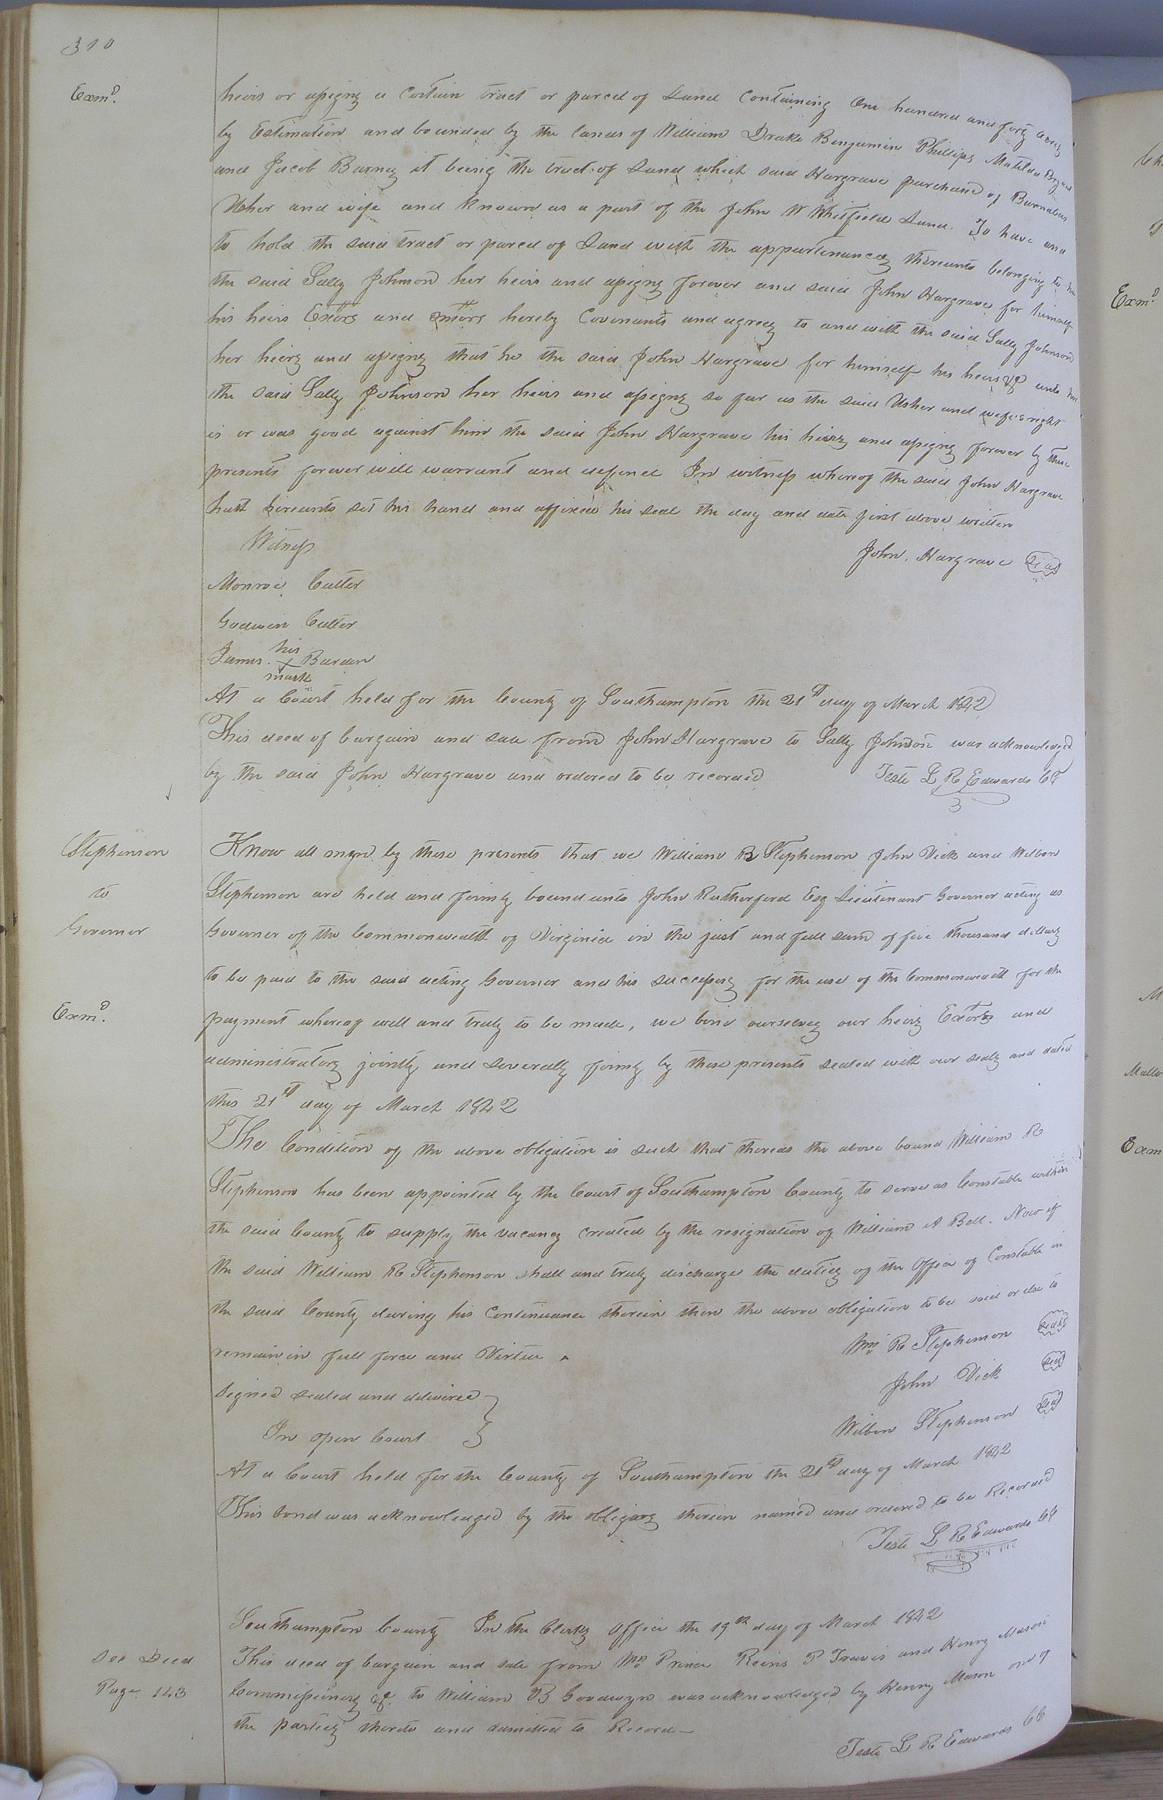 310
Exmd.
heirs or assigns a certain tract or parcel of Land containing One hundred and forty acres
by Estimation and bounded by the lands of William Drake Benjamin Phillips Matilda
and Jacob Barnes it being the tract of Land which said Hargrave purchased of Barnabas
Usher and wife and known as a part of the John W Whitfield Land. To have and
to hold the said tract or parcel of Land with the appurtenances thereunto belonging to
the said Sally Johnson her heirs and assigns forever and said John Hargrave for himself
his heirs Exors and hereby Covenants and agrees to and with the said Sally Johnson
her heirs and assigns that he the said John Hargrave for himself his heirs &c unto
the said Sally Johnson her heirs and assigns so far as the said Usher and wifes right
is or was good against him the said John Hargrave his heirs and assigns forever by these
presents forever will warrant and defend In witness whereof the said John Hargrave
hath hereunto set his hand and affixed his seal the day and date first above written
Witness
John. Hargrave Seal
Monroe Cutler
Godwin Cutler
James his X mark Barden
At a Court held for the County of Southampton the 21st day of March 1842
This deed of bargain and sale from John Hargrave to Sally Johnson was acknowledged
by the said John Hargrave and ordered to be recorded
Teste L R Edwards Clk
Stephenson
to
Governor
Exmd.
Know all men by these presents that we William R Stephenson John Vick and Wilson
Stephenson are held and firmly bound unto John Rutherford Esq Lieutenant Governor acting as
Governor of the Commonwealth of Virginia in the just and full sum of five thousand dollars
to be paid to the said acting Governor and his successors for the use of the Commonwealth for the
payment whereof well and truly to be made, we bind ourselves our heirs Extors and
administrators jointly and severally firmly by these presents sealed with our seals and dated
this 21st day of March 1842
The Condition of the above obligation is such that whereas the above bound William R
Stephenson has been appointed by the Court of Southampton County to serve as Constable within
the said County to supply the vacancy created by the resignation of William A Bell. Now if
the said William R Stephenson shall and truly discharge the duties of the Office of Constable in
the said County during his Continuance therein then the above obligation to be void or else to
remain in full force and Virtue.
Wm R Stephenson Seal
Signed sealed and delivered
John Vick Seal
In open Court
Wilson Stephenson Seal
At a Court held for the County of Southampton the 21st day of March 1842
This bond was acknowledged by the obligors therein named and ordered to be Recorded
Teste L R Edwards Clk
Southampton County In the Clerks Office the 19th day of March 1842
See Deed
Page 143
This deed of bargain and sale from Wm Prince Reins P Travis and Henry Mason
Commissioners &c to William B Goodwyn was acknowledged by Henry Mason one of
the parties thereto and admitted to Record—
Teste L R Edwards CC
Exmd
Exm